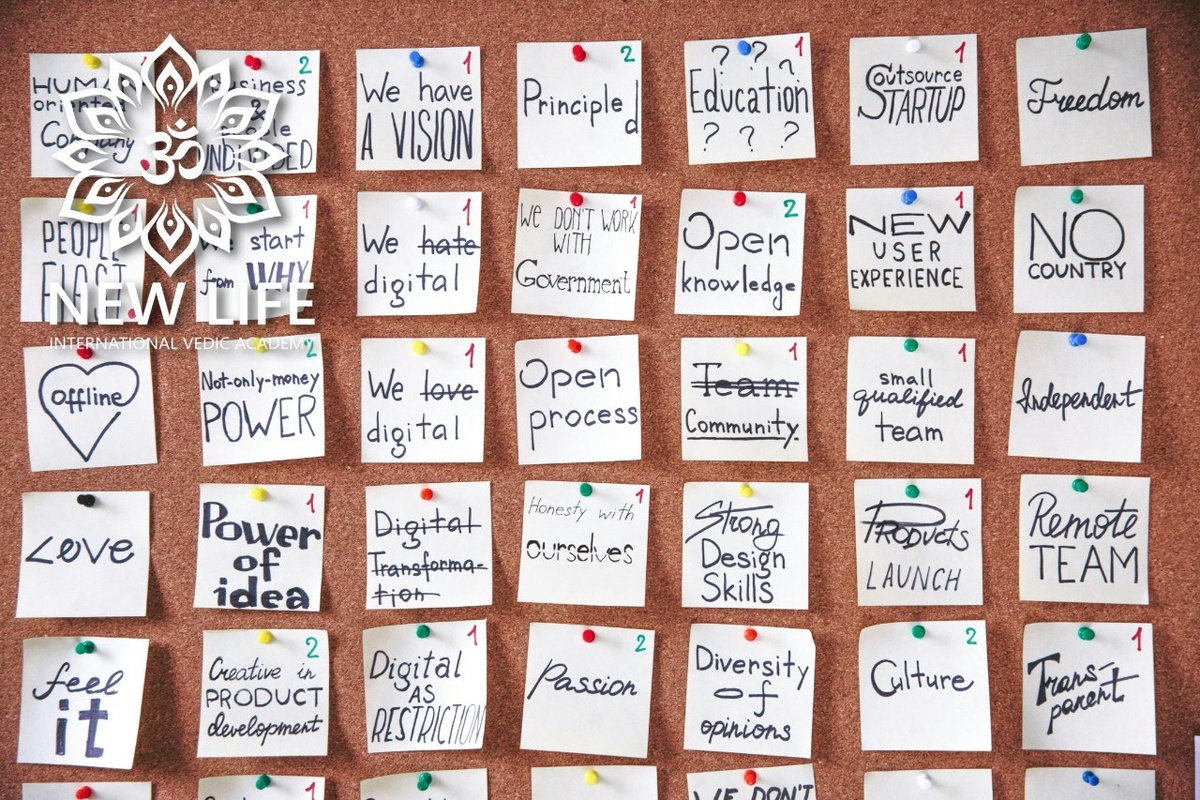 HUMAN 1
oriented
Company
Business 2
&
People
1
We have
A VISION
2
Principled
? ? ?
1
Education
? ? ?
1
Outsource
STARTUP
Freedom
ॐ
PEOPLE 1
FIRST
1
We start
from WHY
1
We hate
digital
1
WE DON'T WORK
WITH
Government
2
Open
knowledge
1
NEW
USER
EXPERIENCE
NO
COUNTRY
NEW LIFE
INTERNATIONAL VEDIC ACADEMY
offline
2
Not-only-money
POWER
1
We love
digital
Open
process
1
Team
Community.
1
small
qualified
team
Independent
Love
1
Power
of
idea
Digital
Transforma-
tion
1
Honesty with
ourselves
Strong
Design
Skills
1
PRODUCTS
LAUNCH
Remote
TEAM
feel
it
2
Creative in
PRODUCT
development
1
Digital
AS
RESTRICTION
2
Passion
Diversity
of
opinions
2
Culture
1
Trans-
parent
1
WE DON'T